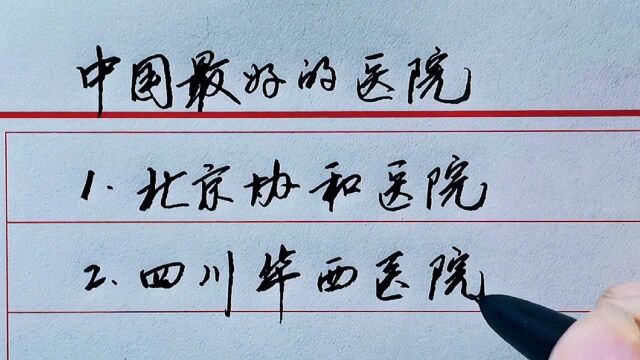 中国最好的医院
1. 北京协和医院
2. 四川华西医院